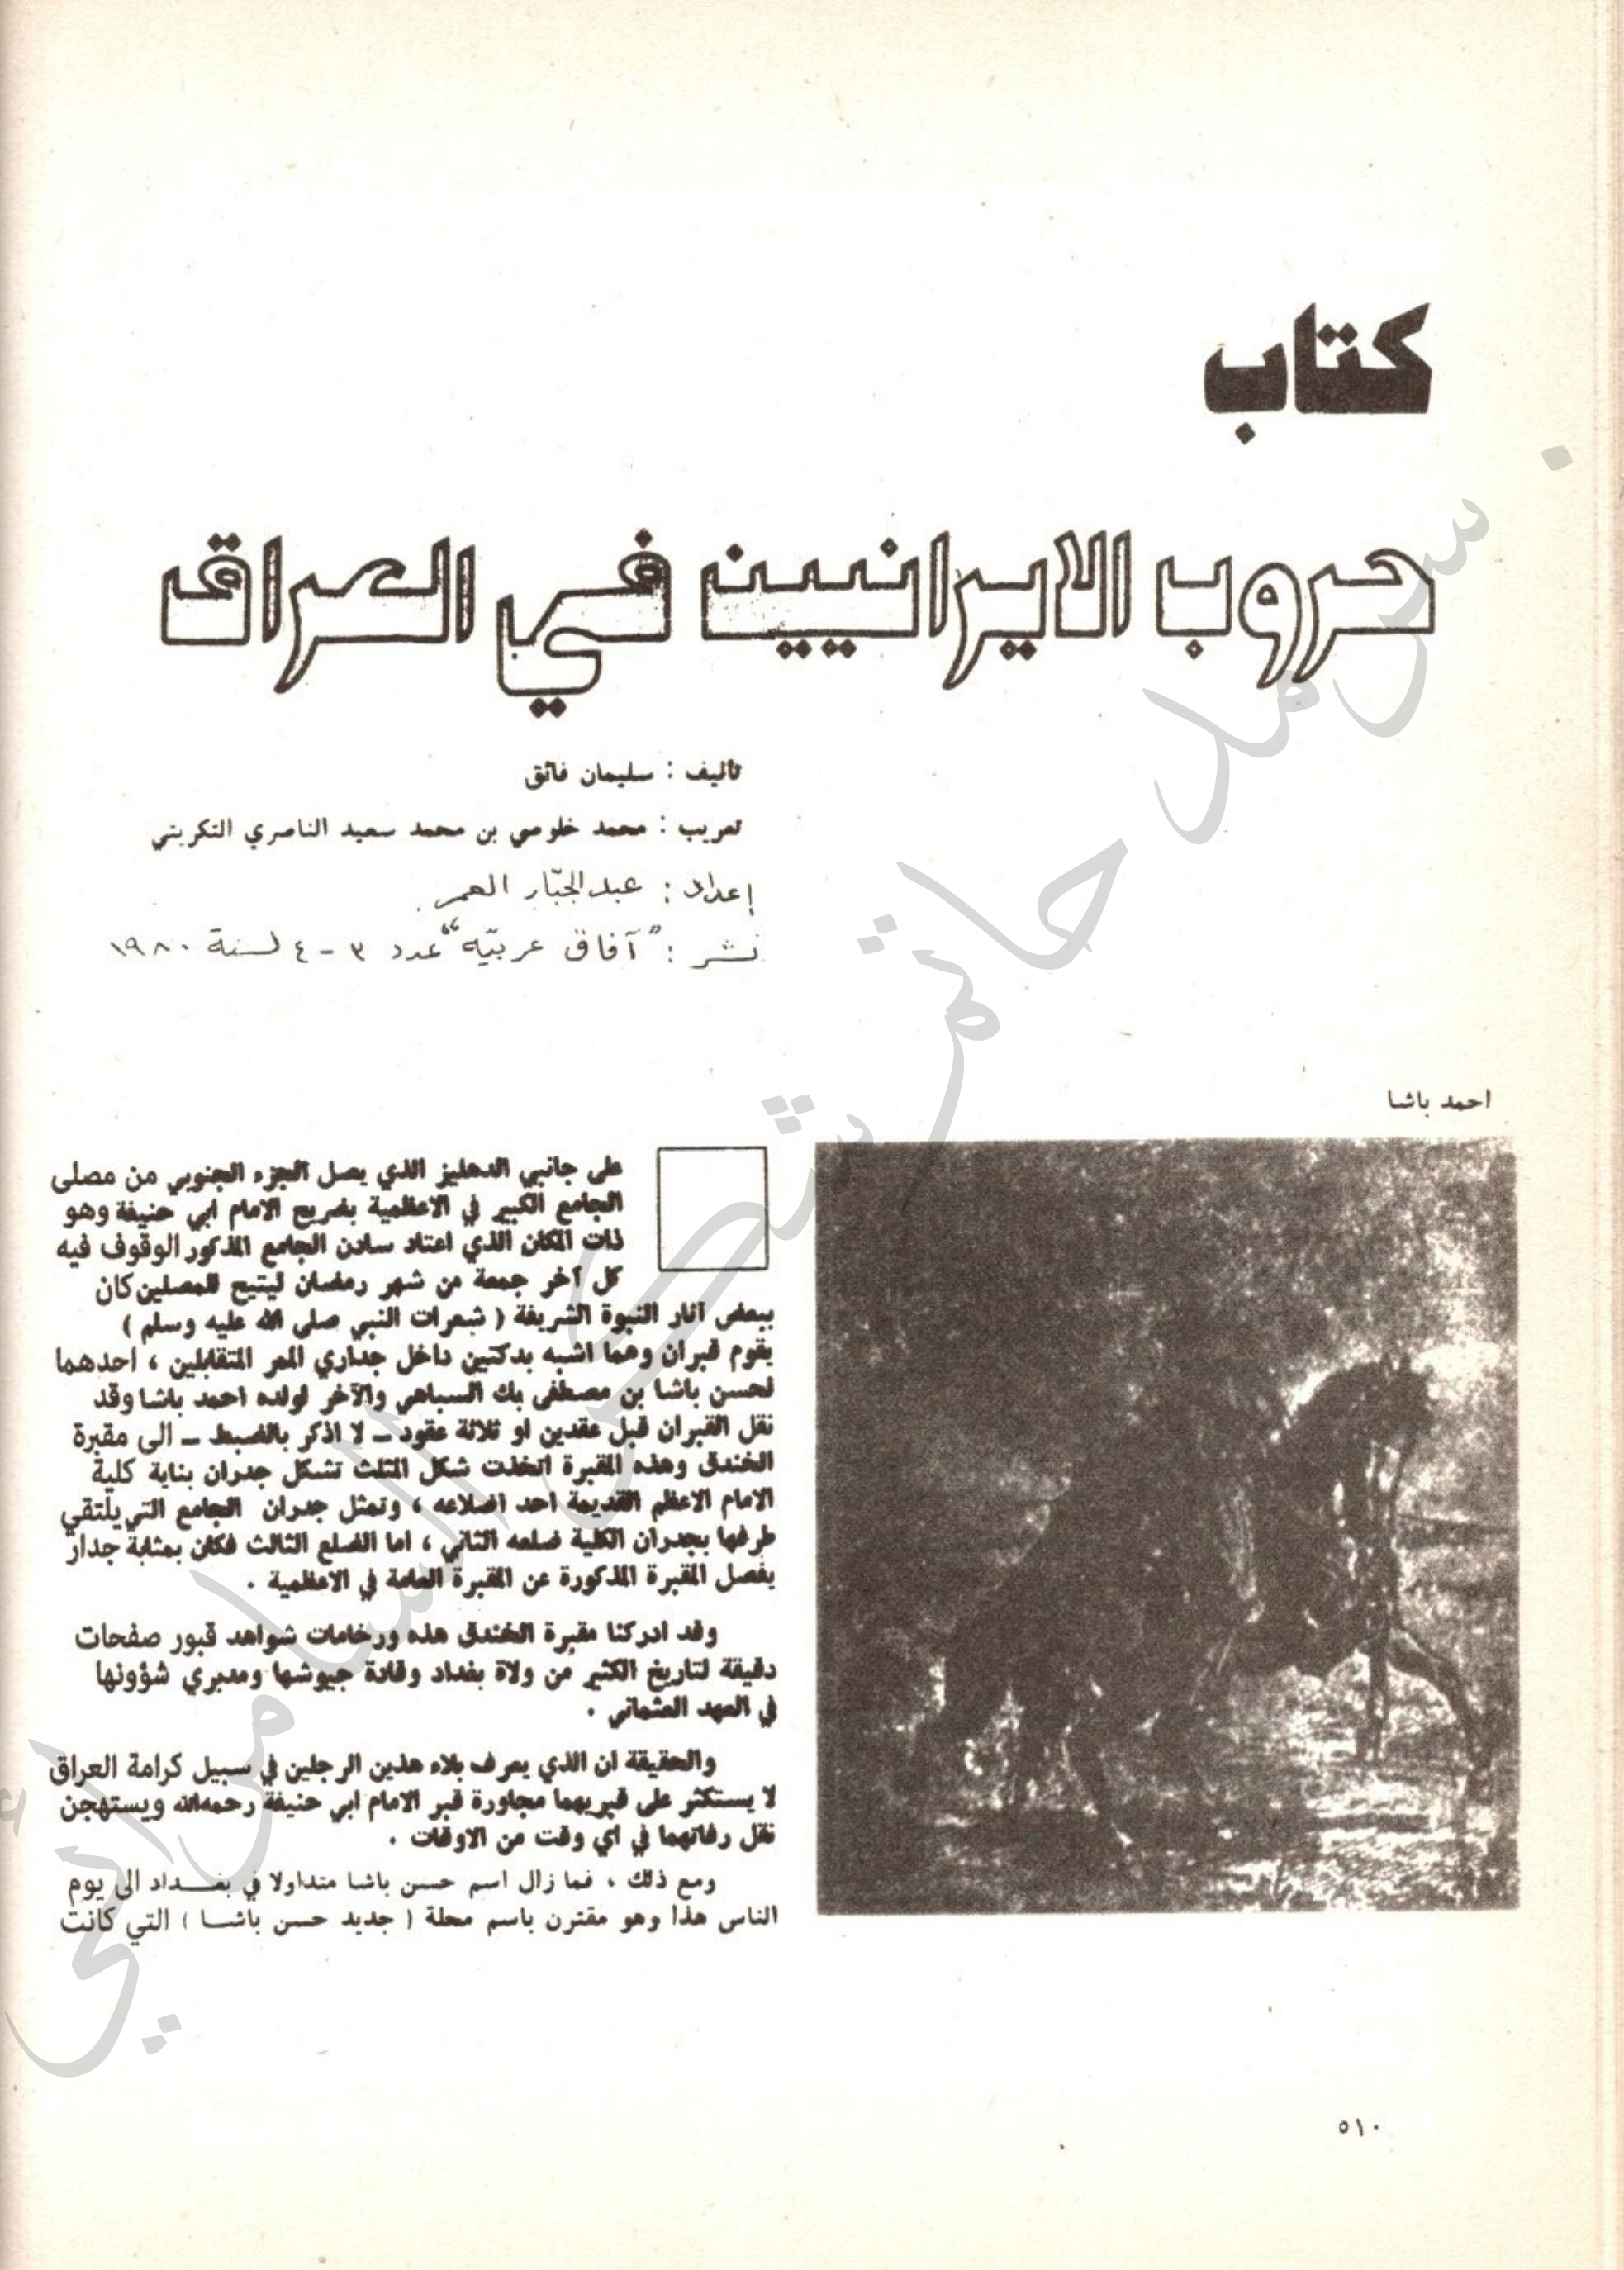 كتاب
حروب الايرانيين في العراق
تأليف : سليمان فائق
تعريب : محمد خلوصي بن محمد سعيد الناصري التكريتي
إعداد : عبد الجبّار العمر
نشر : "آفاق عربيّه" عدد ٣ - ٤ لسنة ١٩٨٠
احمد باشا
على جانبي الدهليز الذي يصل الجزء الجنوبي من مصلى
الجامع الكبير في الاعظمية بضريح الامام ابي حنيفة وهو
ذات المكان الذي اعتاد سادن الجامع المذكور الوقوف فيه
كل آخر جمعة من شهر رمضان ليتيح للمصلين كان
ببعض آثار النبوة الشريفة ( شعرات النبي صلى الله عليه وسلم )
يقوم قبران وهما اشبه بدكتين داخل جداري الممر المتقابلين ، احدهما
لحسن باشا بن مصطفى بك السباهي والآخر لولده احمد باشا وقد
نقل القبران قبل عقدين او ثلاثة عقود ــ لا اذكر بالضبط ــ الى مقبرة
الخندق وهذه المقبرة اتخذت شكل المثلث تشكل جدران بناية كلية
الامام الاعظم القديمة احد اضلاعه ، وتمثل جدران الجامع التي يلتقي
طرفها بجدران الكلية ضلعه الثاني ، اما الضلع الثالث فكان بمثابة جدار
يفصل المقبرة المذكورة عن المقبرة العامة في الاعظمية .
وقد ادركنا مقبرة الخندق هذه ورخامات شواهد قبور صفحات
دقيقة لتاريخ الكثير من ولاة بغداد وقادة جيوشها ومدبري شؤونها
في العهد العثماني .
والحقيقة ان الذي يعرف بلاء هذين الرجلين في سبيل كرامة العراق
لا يستكثر على قبريهما مجاورة قبر الامام ابي حنيفة رحمه الله ويستهجن
نقل رفاتهما في اي وقت من الاوقات .
ومع ذلك ، فما زال اسم حسن باشا متداولا في بغــداد الى يوم
الناس هذا وهو مقترن باسم محلة ( جديد حسن باشــا ) التي كانت
٥١٠
سرمد حاتم شكر السامرائي